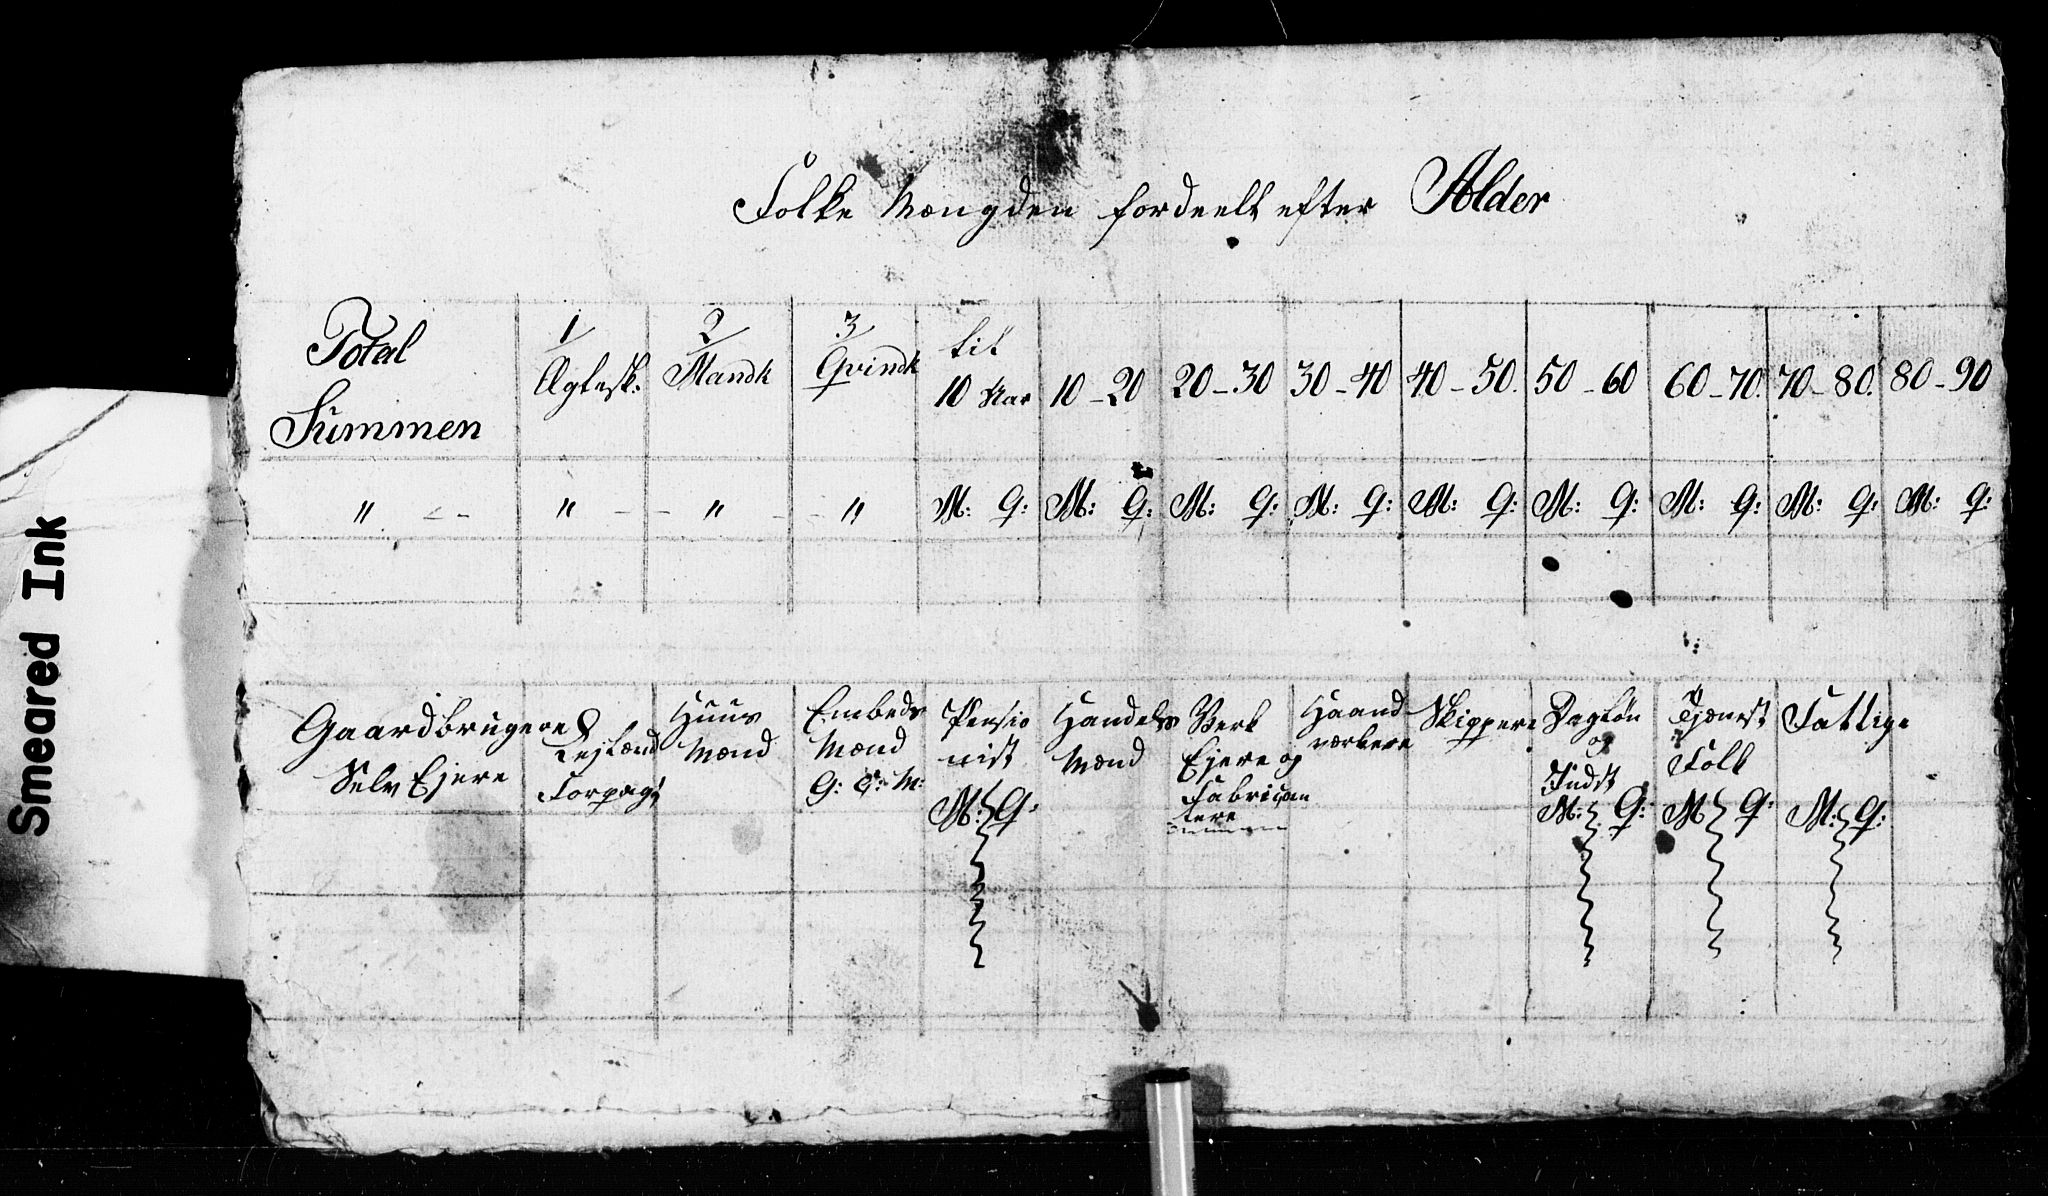 Folke Mængden fordeelt efter Alder
Total Summen | 1 Ægtesk: | 2 Mandk | 3 Qvindk | til 10 Aar | 10-20 | 20-30 | 30-40 | 40-50. | 50-60 | 60-70. | 70-80. | 80-90
" - - | " - - | " - - | " | M: Q: | M: Q: | M: Q: | M: Q: | M: Q: | M: Q: | M: Q: | M: Q: | M: Q:
Gaardbrugere Selv Ejere | Forpagt | Huus Mænd | Embeds Mænd G: C: M: | Pensio nist M: Q: | Handels Mænd | Verk Ejere og Fabrican tere | Haand værkere | Skippere | Dagløn og Indst M: Q: | Tjenest Folk M: Q: | Fattige M: Q:
Smeared Ink